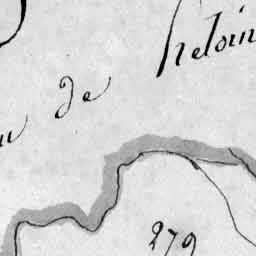 de heloin
279